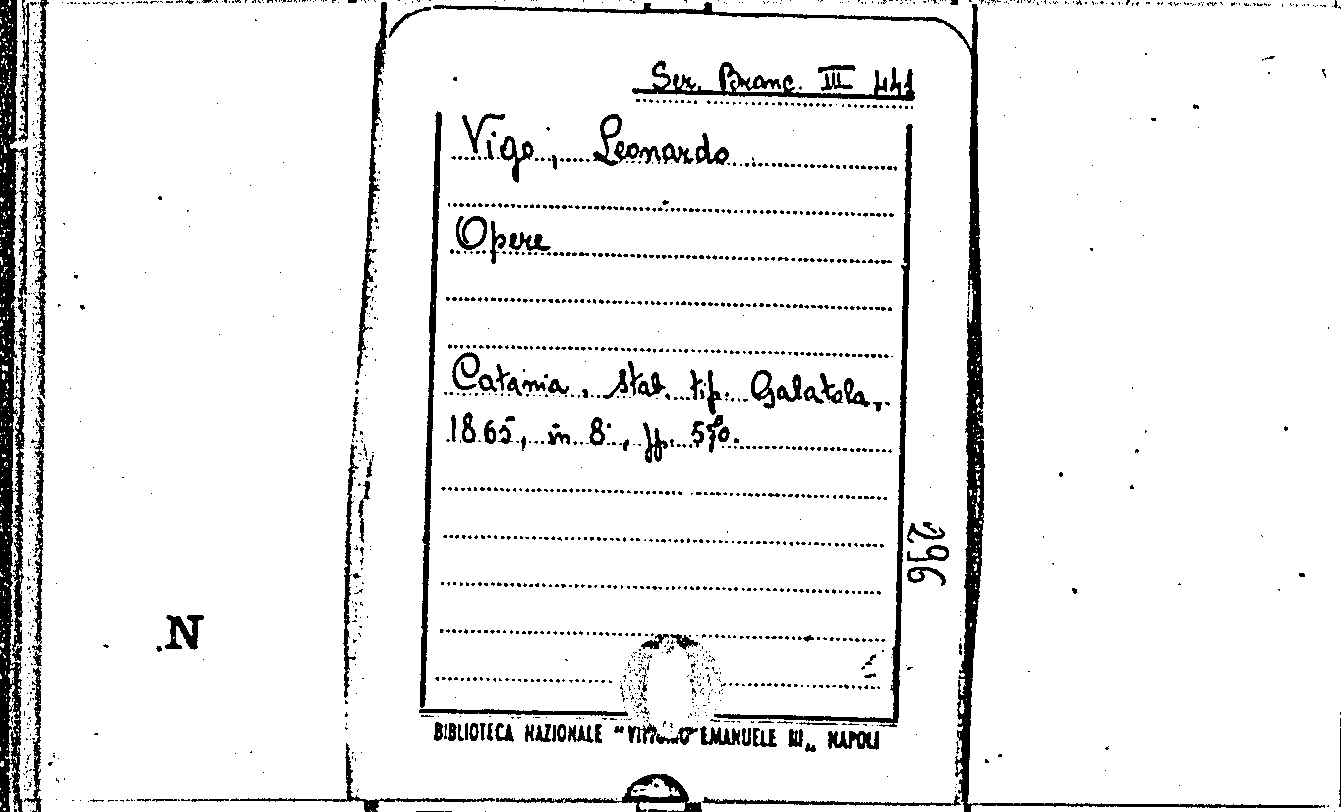 Ser. Branc. III 441
Vigo, Leonardo
Opere
Catania, stab. tip. Galatola,
1865, in 8°, pp. 570.
296
N
BIBLIOTECA NAZIONALE "VITTORIO EMANUELE III" NAPOLI